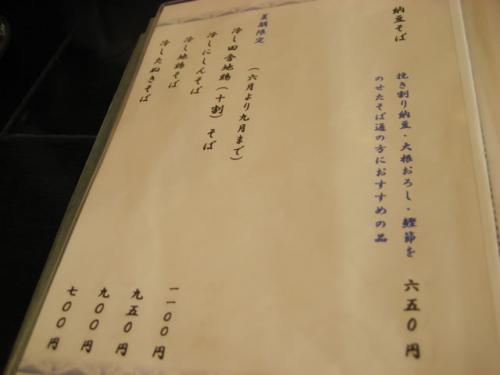 納豆そば
挽き割り納豆・大根おろし・鰹節を
のせたそば通の方におすすめの品
六五〇円
夏期限定
(六月より九月まで)
冷し田舎地鶏(十割)そば
一一〇〇円
冷しにしんそば
九五〇円
冷し地鶏そば
九〇〇円
冷したぬきそば
七〇〇円